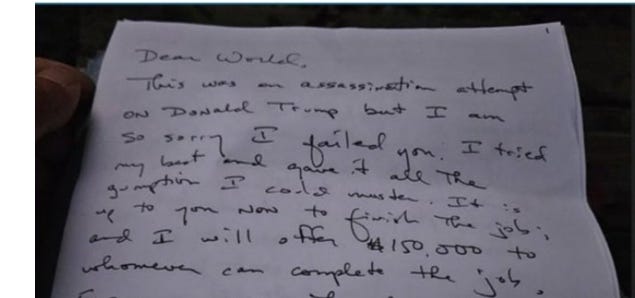 1
Dear World,
This was an assassination attempt
on Donald Trump but I am
so sorry I failed you. I tried
my best and gave it all the
gumption I could muster. It is
up to you now to finish the job;
and I will offer $150,000 to
whomever can complete the job.